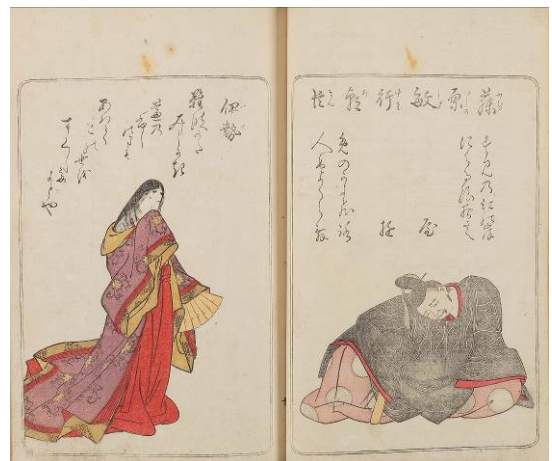 藤原敏行朝臣
すみの江の岸
による浪よるさへ
屋
遊
めのかよひ路
人めよくらむ
伊勢
難波かた
みしかき
蘆乃
ふしのまも
あはて
この世を
すくして
よとや